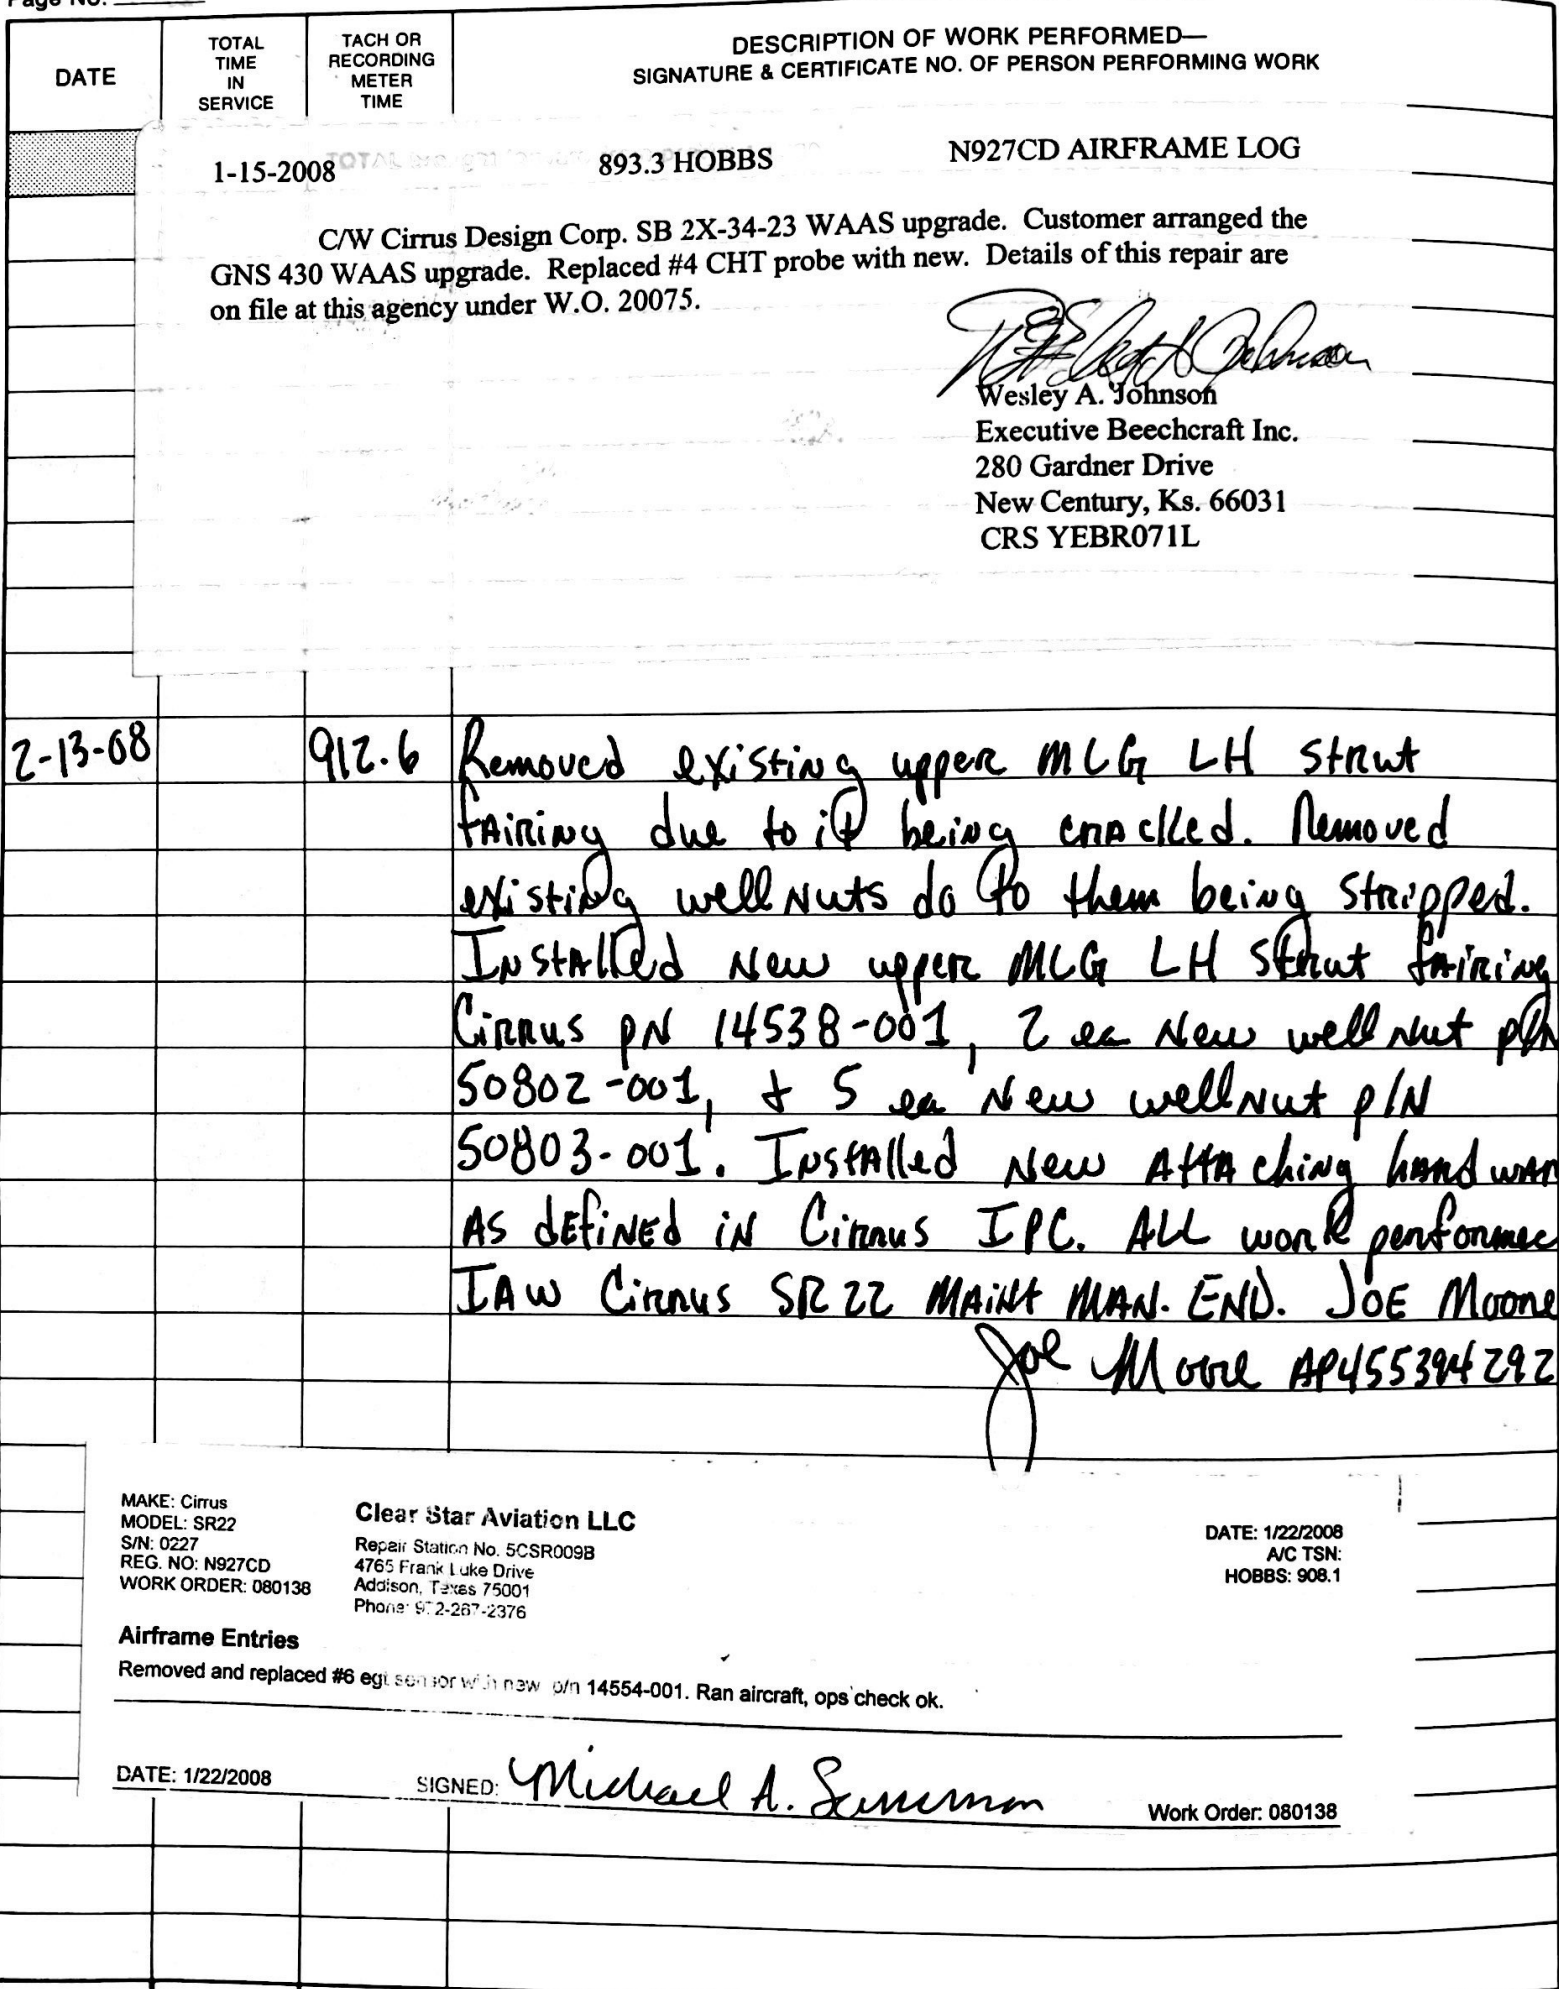 Page No.
DATE
TOTAL
TIME
IN
SERVICE
TACH OR
RECORDING
METER
TIME
DESCRIPTION OF WORK PERFORMED—
SIGNATURE & CERTIFICATE NO. OF PERSON PERFORMING WORK
1-15-2008 893.3 HOBBS N927CD AIRFRAME LOG
C/W Cirrus Design Corp. SB 2X-34-23 WAAS upgrade. Customer arranged the
GNS 430 WAAS upgrade. Replaced #4 CHT probe with new. Details of this repair are
on file at this agency under W.O. 20075.
Wesley A. Johnson
Executive Beechcraft Inc.
280 Gardner Drive
New Century, Ks. 66031
CRS YEBR071L
2-13-08 912.6 Removed existing upper MLG LH strut
fairing due to it being cracked. Removed
existing well nuts do to them being stripped.
Installed new upper MLG LH strut fairing
Cirrus pN 14538-001, 2 ea New well nut p/n
50802-001, & 5 ea New wellnut p/N
50803-001. Installed New Attaching hardwar
As defined in Cirrus IPC. ALL work performed
IAW Cirrus SR22 Maint Man. END. Joe Moore
Joe Moore AP455394292
MAKE: Cirrus
MODEL: SR22
S/N: 0227
REG. NO: N927CD
WORK ORDER: 080138
Clear Star Aviation LLC
Repair Station No. 5CSR009B
4765 Frank Luke Drive
Addison, Texas 75001
Phone: 972-267-2376
DATE: 1/22/2008
A/C TSN:
HOBBS: 908.1
Airframe Entries
Removed and replaced #6 egt sensor with new p/n 14554-001. Ran aircraft, ops check ok.
DATE: 1/22/2008 SIGNED: Michael A. Work Order: 080138